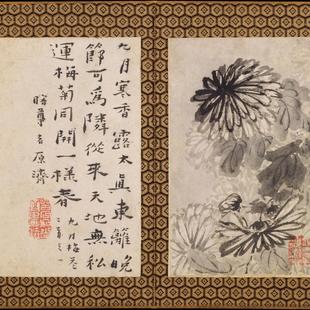 九月寒香露太真東籬晚
節可爲隣從來天地無私
運梅菊同開一樣春
九月梅花
二首之一
瞎尊者原濟